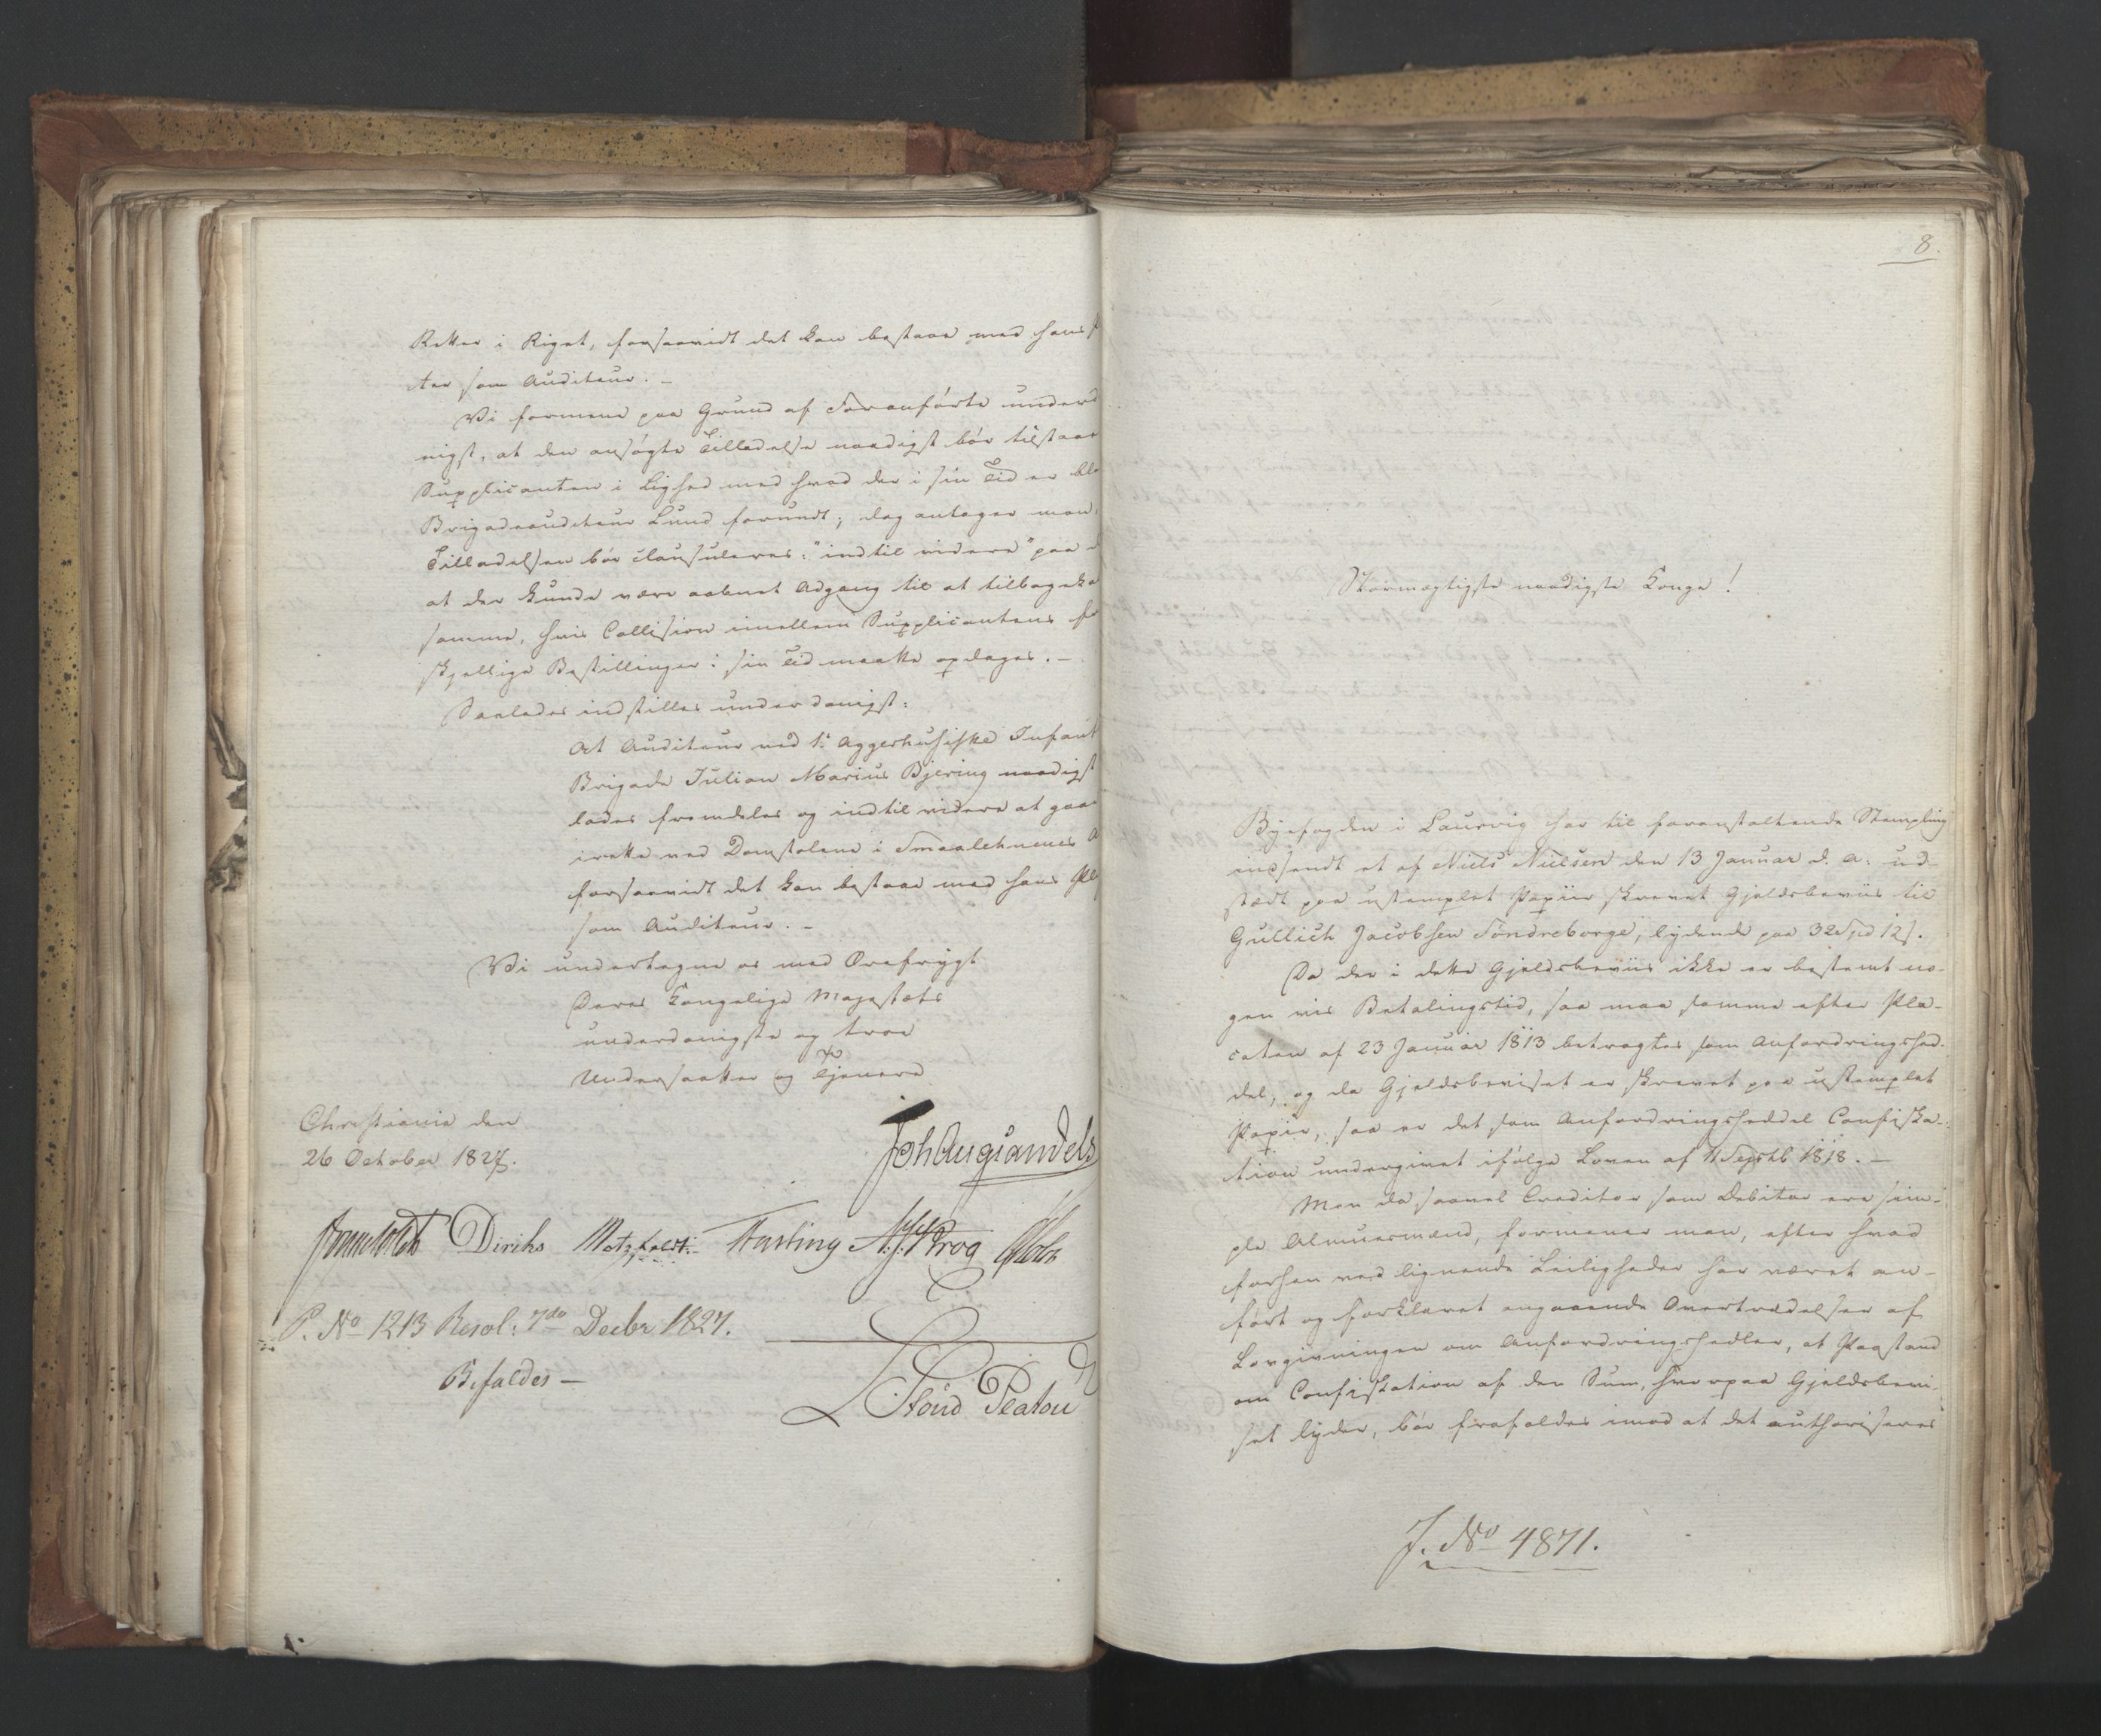 Retter i Riget, forsaavidt det kan bestaae med hans
ter som Auditeur. –
Vi formene paa Grund af Foranførte underd
nigst, at den ansøgte Tilladelse naadigst bør tilstaae
Supplicanten i Lighed med hvad der i sin Tid er ble
Brigadeauditeur Lund forundt; dog antager man
Tilladelsen bør clausuleres: "indtil videre" paa
at der kunde være aabnet Adgang til at tilbageka
samme, hvis Collision imellem Supplicantens fo
skjellige Bestillinger i sin Tid maatte opdages. –
Saaledes indstilles underdanigst:
At Auditeur ved 1ste Aggershusiske Infant
Brigade Julian Marius Bjering naadigst
lades fremdeles og indtil videre at gaae
irette ved Domstolene i Smaalehnenes A
forsaavidt det kan bestaae med hans Pli
som Auditeur. –
Vi undertegne os med Ærefrygt
Deres Kongelige Majestæts
underdanigste og troe
Undersaatter og Tjenere
Christiania den
26 October 1827.
Joh Aug Sandels
Diriks Motzfeldt Fasting
P. No 1213 Resol: 7de Decbr 1827.
Bifaldes –
Stoud Platou
8.
Stormægtigste naadigste Konge!
Byefogden i Laurvig har til foranstaltende Stempling
indsendt et af Niels Nielsen den 13 Januar d. A. ud-
stædt paa ustemplet Papiir skrevet Gjeldsbeviis til
Gullich Jacobsen Søndreborge, lydende paa 32 Spd 12 s.
Da der i dette Gjeldsbeviis ikke er bestemt no-
gen vis Betalingstid, saa maa samme efter Pla-
caten af 23 Januar 1813 betragtes som Anfordringssed-
del, og da Gjeldsbeviset er skrevet paa ustemplet
Papiir, saa er det som Anfordringsseddel Confiska-
tion undergivet ifølge Loven af 11 Septbr 1818. –
Men da saavel Creditor som Debitor ere sim-
ple Almuesmænd, formener man, efter hvad
forhen ved lignende Leiligheder har været an-
ført og forklaret angaaende Overtrædelser af
Lovgivningen om Anfordringssedler, at Paastand
om Confiskation af den Sum, hvorpaa Gjeldsbevi-
set lyder, bør frafaldes imod at det authoriseres
J. No 4871.